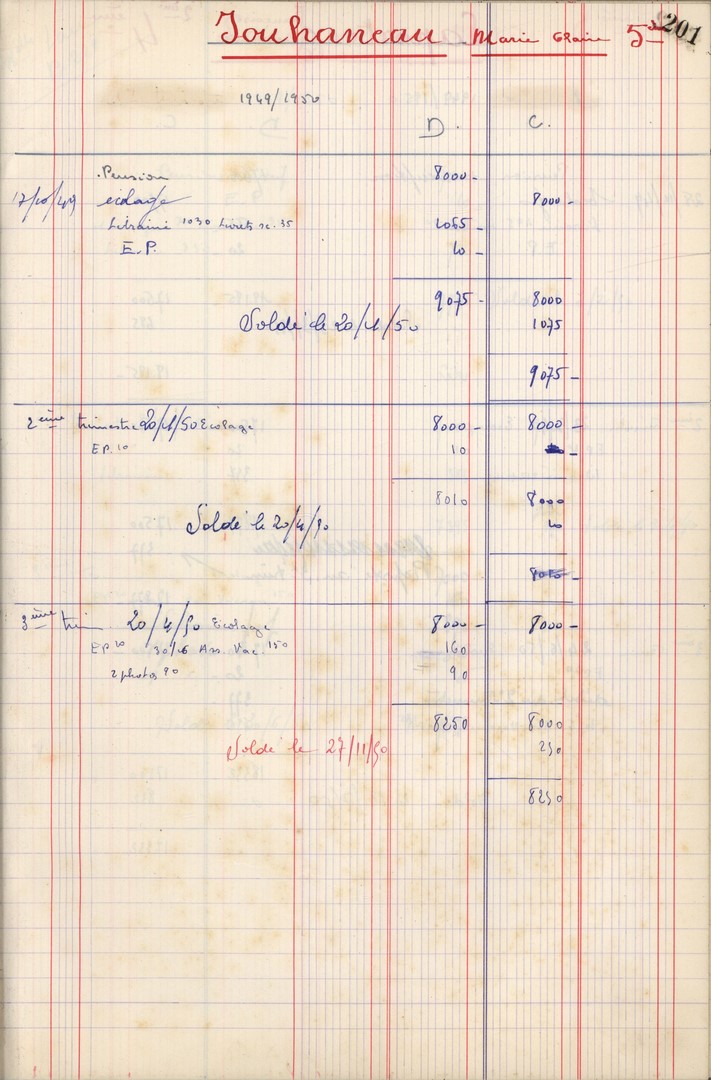 Jouhaneau Marie Claire 5è 201
1949/1950
D. C.
Pension 8000 -
17/10/49 écolage 8000 -
Librairie 1030 Livrets sc. 35 1065 -
E.P. 10 -
9075 - 8000
Soldé le 20/1/50 1075
9075 -
2ème trimestre 20/1/50 Ecolage 8000 - 8000 -
EP. 10 10 -
8010 8000
Soldé le 20/4/50 10
8010 -
3ème tri 20/4/50 Ecolage 8000 - 8000 -
EP 10 30/6 Ass. Vac. 150 160
2 photos 90 90
8250 8000
Soldé le 27/11/50 250
8250